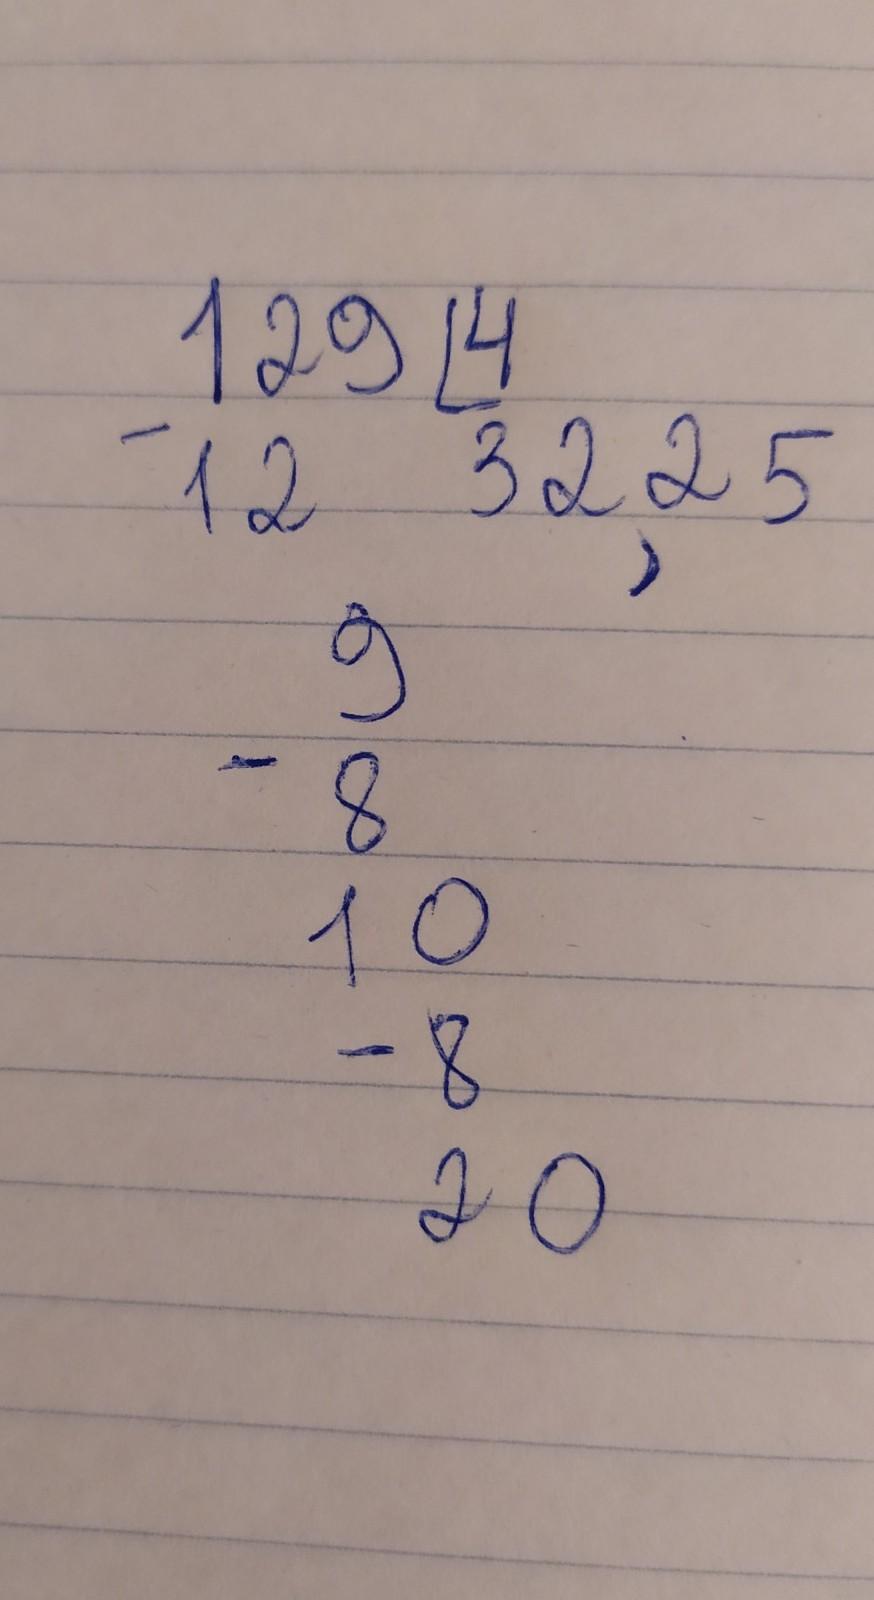 129 4
- 12 32,25
9
- 8
10
- 8
20